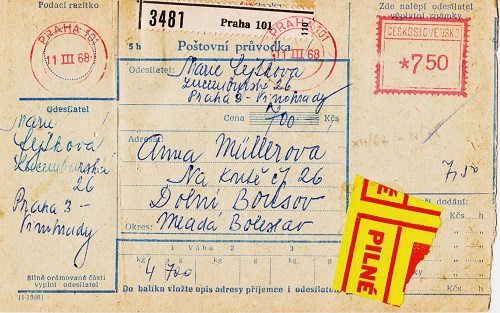 Podací razítko
3481 Praha 101
110
Zde nalepí odesílatel
výplatní známky
PRAHA 101
11 III 68
11 III 68
ČESKOSLOVENSKO
*7.50
Poštovní průvodka
Odesílatel: Marie
Lucemburská 26
Praha 3 - Vinohrady
Cena 700 Kčs
Odesílatel
Marie
Lucemburská
26
Praha 3 -
Vinohrady
Adresát:
Anna Müllerova
Na čj 26
Dolní Bousov
Okres: Mladá Boleslav
7,50
dodání:
Kčs h
Kčs h
h
Váha
1 2 3
kg g kg g kg g
4 700
Silně orámované části
vyplní odesílatel
(1-1960)
Do balíku vložte opis adresy příjemce i odesílatele
PILNÉ
NÉ